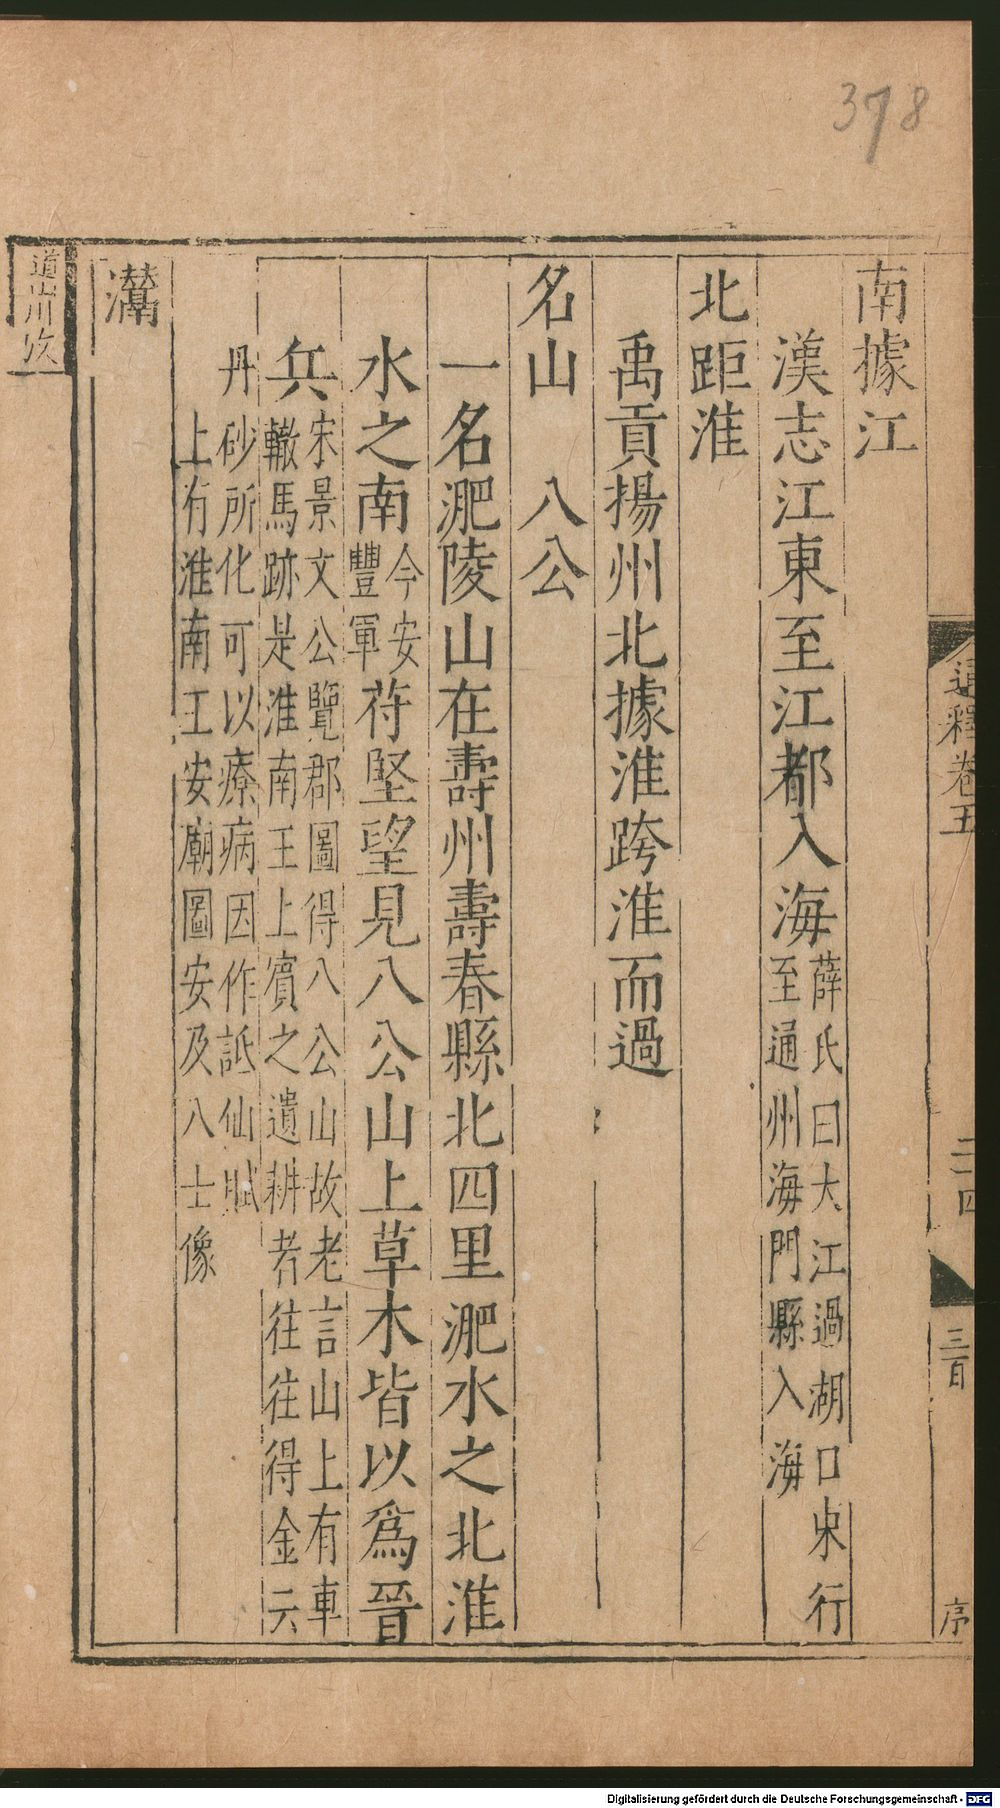 378
南據江
漢志江東至江都入海薛氏曰大江過湖口東行
至通州海門縣入海
北距淮
禹貢揚州北據淮跨淮而過
名山　八公
一名淝陵山在壽州壽春縣北四里淝水之北淮
水之南今安
豐軍苻堅望見八公山上草木皆以爲晉
兵宋景文公覽郡圖得八公山故老言山上有車
轍馬跡是淮南王上賓之遺耕者往往得金云
丹砂所化可以療病因作詆仙賦
上有淮南王安廟圖安及八士像
灊
道州次
通釋卷五
二十四
三百
序
Digitalisierung gefördert durch die Deutsche Forschungsgemeinschaft - DFG